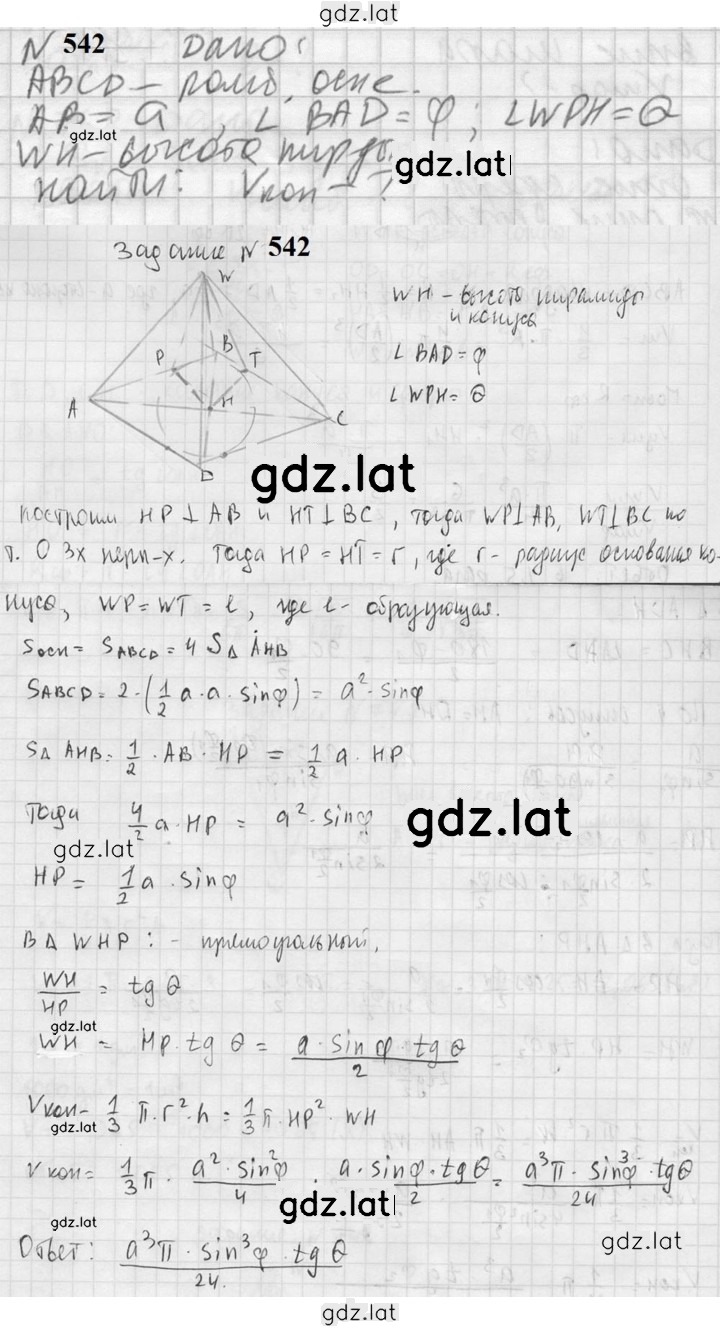 gdz.lat
N 542 Дано:
ABCD – ромб, осн.
AB = a, ∠ BAD = φ; ∠WPH = Θ
gdz.lat
WH – высота пирды.
gdz.lat
найти: Vкон – ?
Задание N 542
W
WH – высота пирамиды
и конуса
∠ BAD = φ
∠ WPH = Θ
P B T
A H C
D
gdz.lat
построим HP ⊥ AB и HT ⊥ BC, тогда WP⊥AB, WT⊥BC по
т. О 3х перп-х. Тогда HP = HT = r, где r – радиус основания ко-
нуса, WP = WT = l, где l – образующая.
Sосн = SABCD = 4 SΔ AHB
SABCD = 2·(1/2 a·a·sinφ) = a²·sinφ
SΔ AHB = 1/2 · AB · HP = 1/2 a · HP
Тогда 4/2 a·HP = a²·sinφ
gdz.lat
gdz.lat
HP = 1/2 a · sinφ
В Δ WHP: – прямоугольный,
WH/HP = tg Θ
gdz.lat
WH = HP·tg Θ = a·sin φ·tg Θ/2
Vкон – 1/3 π·r²·h = 1/3 π·HP²·WH
gdz.lat
Vкон = 1/3 π · a²·sin²φ/4 · a·sinφ·tgΘ/2 = a³π·sin³φ·tgΘ/24
gdz.lat
gdz.lat
gdz.lat
Ответ: a³π·sin³φ·tgΘ/24.
gdz.lat